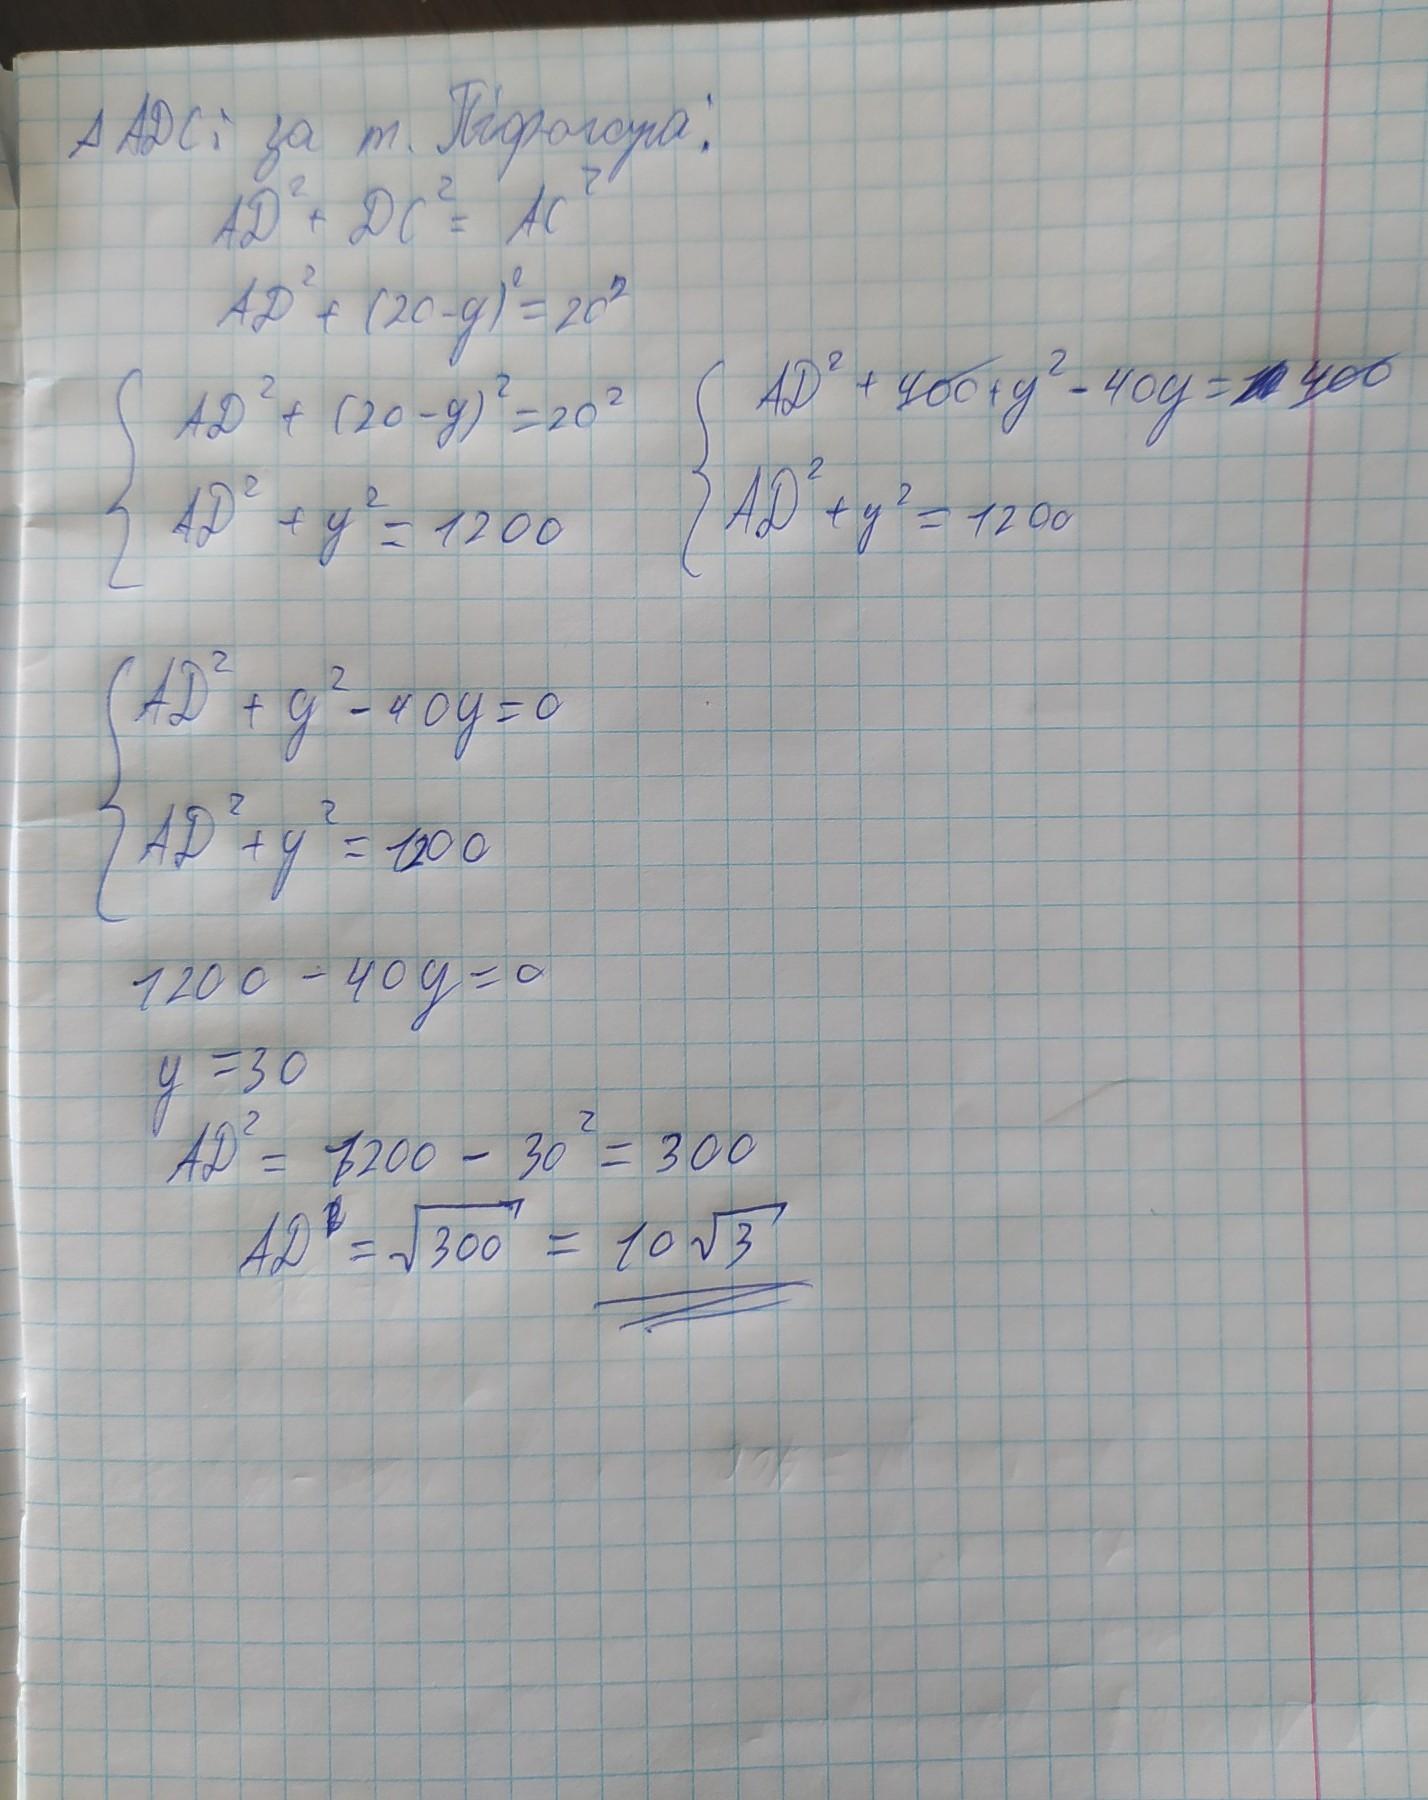 Δ ADC: за т. Піфагора:
AD² + DC² = AC²
AD² + (20-y)² = 20²
AD² + (20-y)² = 20²
AD² + y² = 1200
AD² + 400 + y² - 40y = 400
AD² + y² = 1200
AD² + y² - 40y = 0
AD² + y² = 1200
1200 - 40y = 0
y = 30
AD² = 1200 - 30² = 300
AD = √300 = 10√3